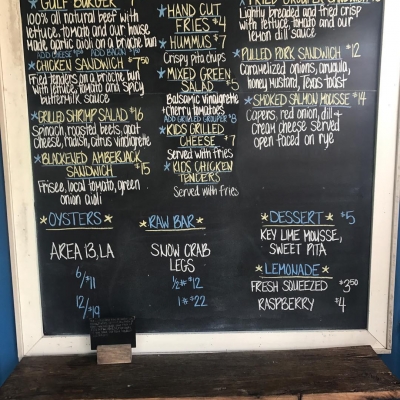 ★GULF BURGER 7
100% all natural beef with
lettuce, tomato and our house
made garlic aioli on a brioche bun
ADD CHEESE ADD BACON
★CHICKEN SANDWICH $7.50
Fried tenders on a brioche bun
with lettuce, tomato and spicy
buttermilk sauce
★GRILLED SHRIMP SALAD $16
Spinach, roasted beets, goat
cheese, radish, citrus vinaigrette
★BLACKENED AMBERJACK
SANDWICH $15
Frisee, local tomato, green
onion aioli
★HAND CUT
FRIES $4
★HUMMUS $7
Crispy pita chips
★MIXED GREEN
SALAD $8
Balsamic vinaigrette
+ cherry tomatoes
ADD GRILLED GROUPER $8
★KIDS GRILLED
CHEESE $7
Served with fries
★KIDS CHICKEN
TENDERS
Served with fries
★FRIED GROUPER SANDWICH
Lightly breaded and fried crisp
with lettuce, tomato and our
lemon dill sauce
★PULLED PORK SANDWICH $12
Caramelized onions, arugula,
honey mustard, Texas toast
★SMOKED SALMON MOUSSE $14
Capers, red onion, dill +
cream cheese served
open faced on rye
★OYSTERS★
AREA 13, LA
6/$11
12/$19
★RAW BAR★
SNOW CRAB
LEGS
1/2# $12
1# $22
★DESSERT★ $5
KEY LIME MOUSSE,
SWEET PITA
★LEMONADE★
FRESH SQUEEZED $3.50
RASPBERRY $4